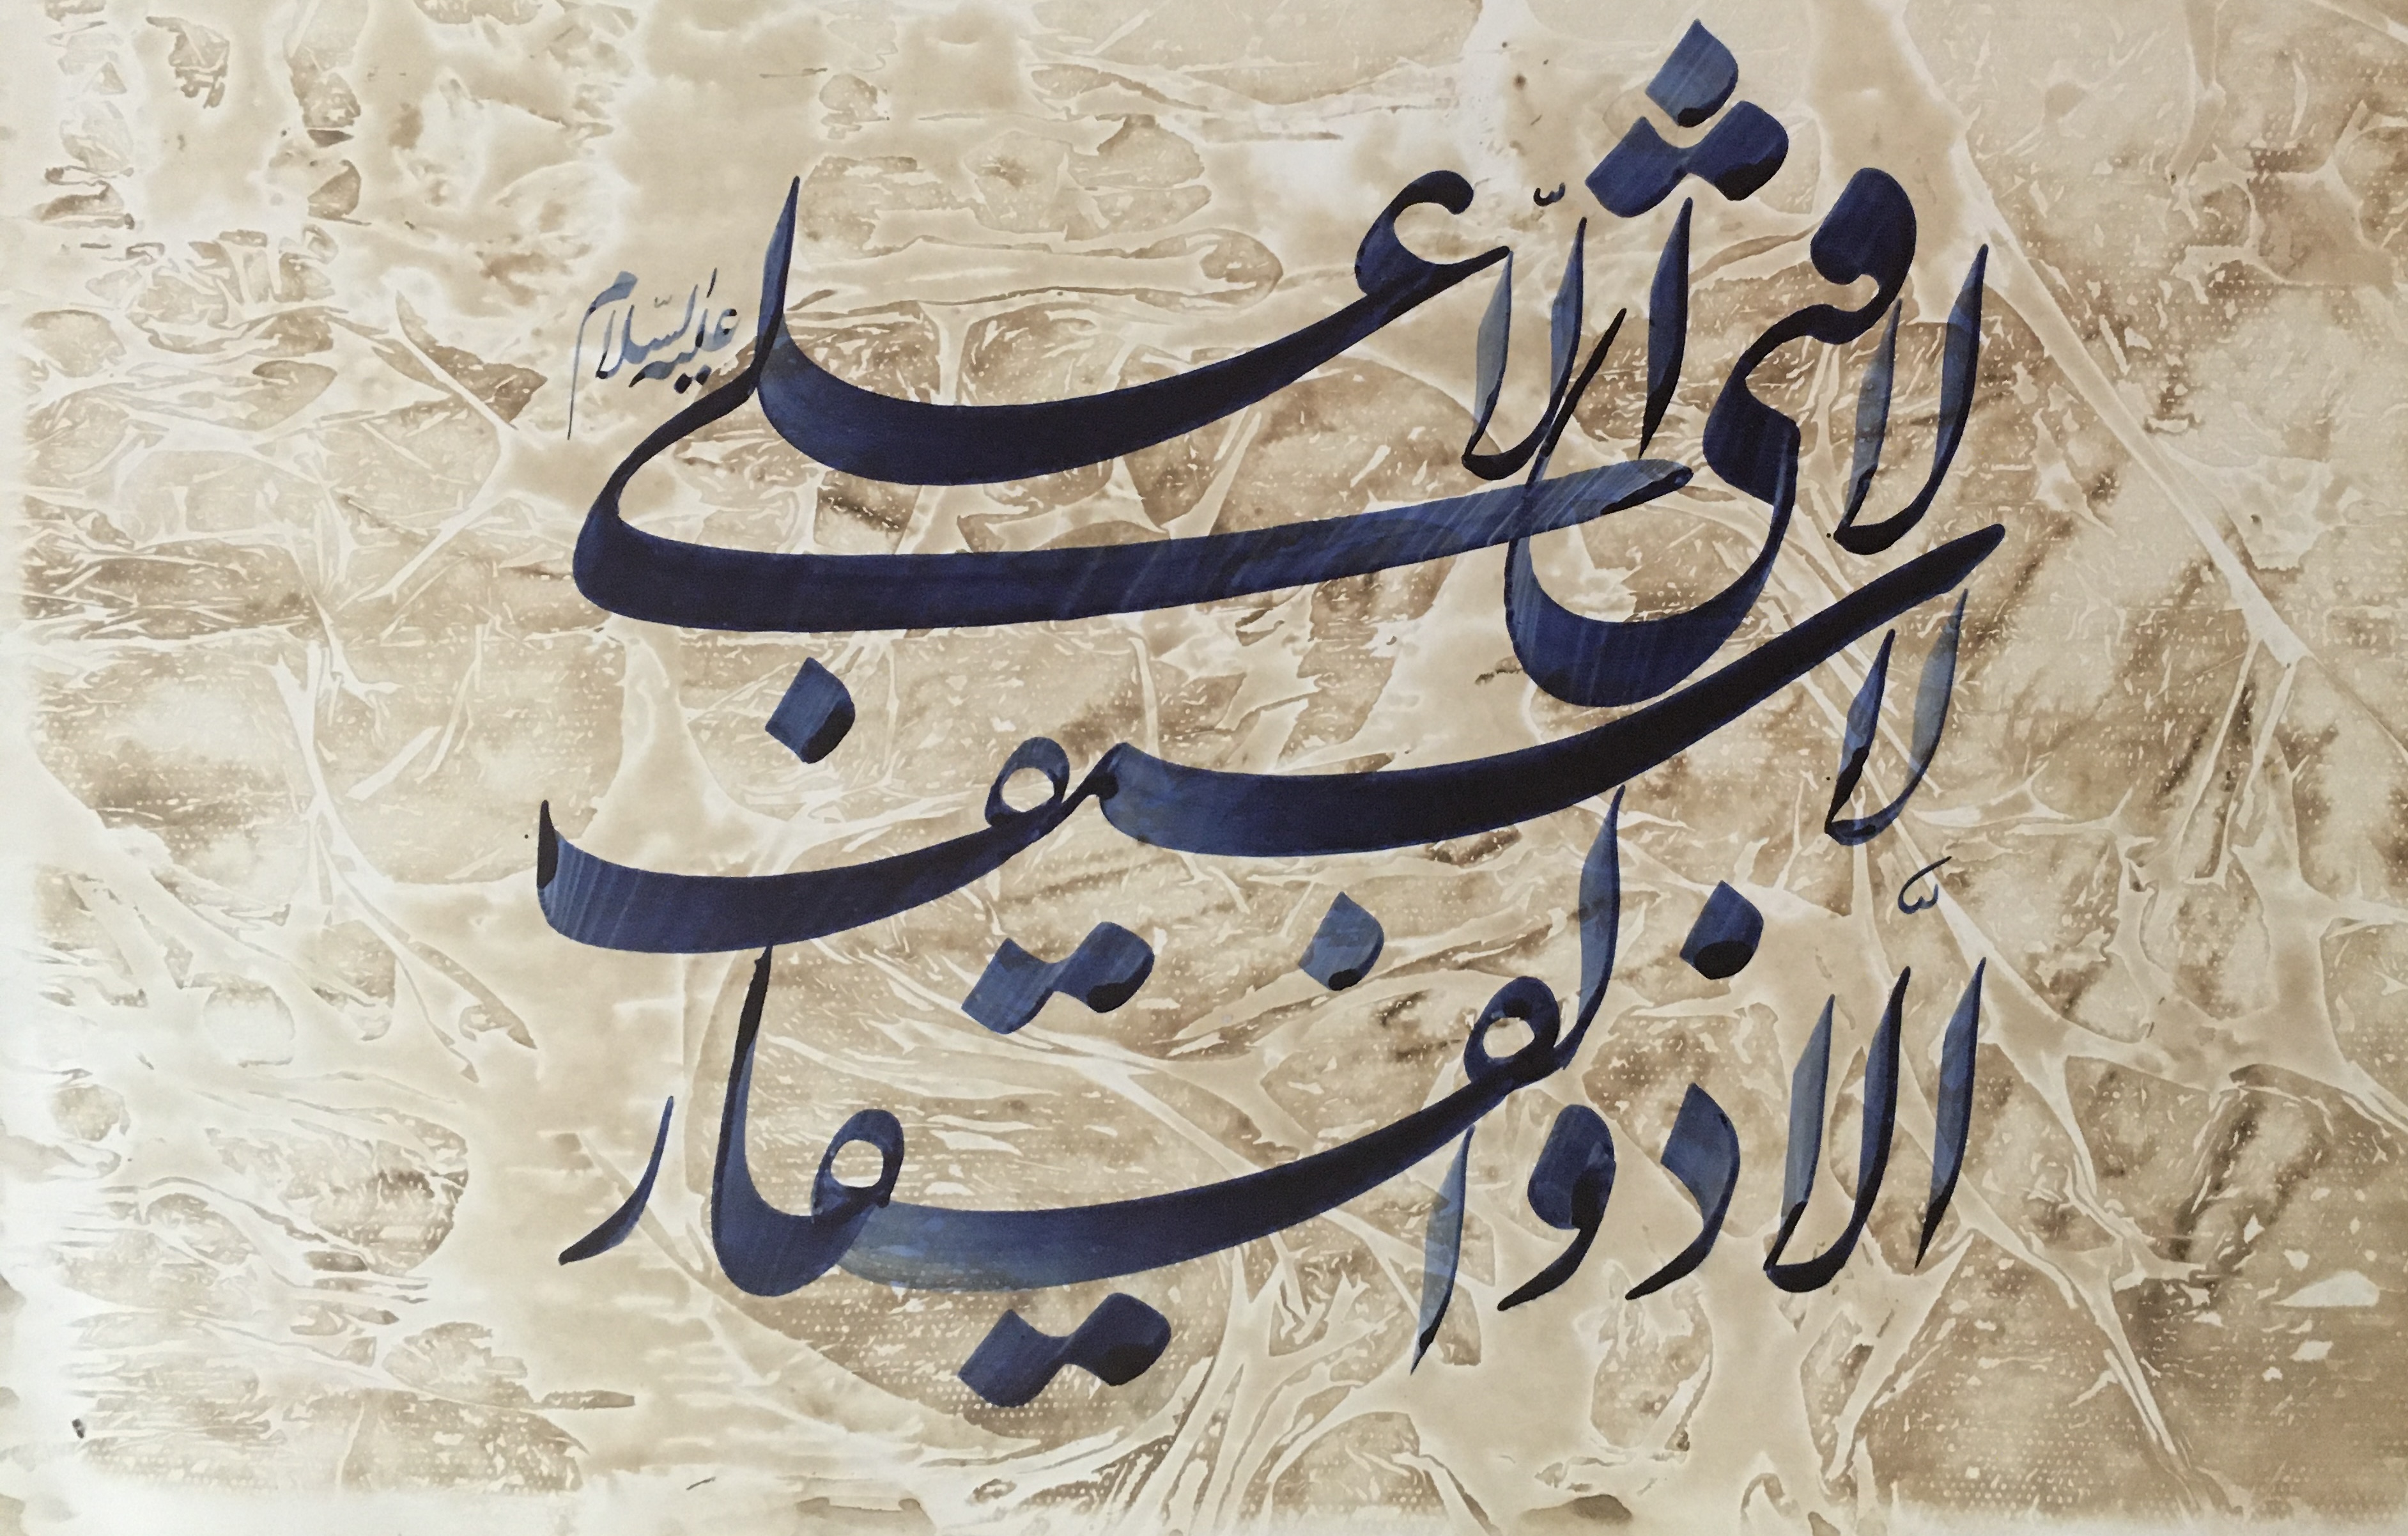 لا فتی الّا علی علیه السّلام
لا سیف
الّا ذوالفقار